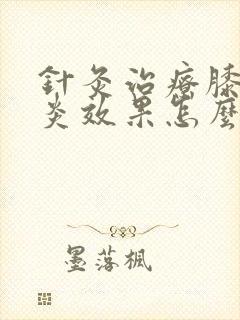 針灸治療膝
炎效果怎麼
墨落楓